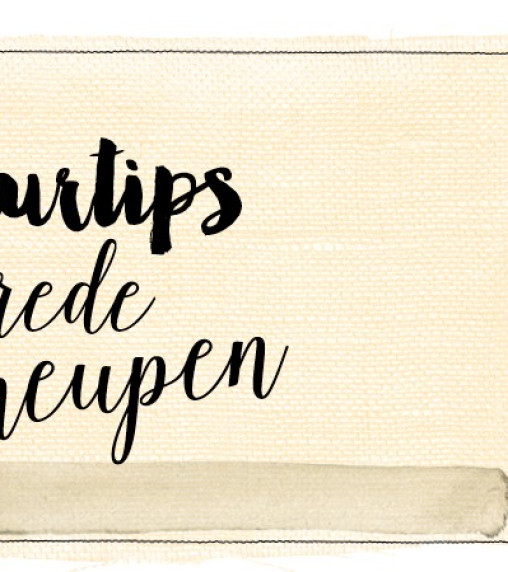 ourtips
rede
heupen